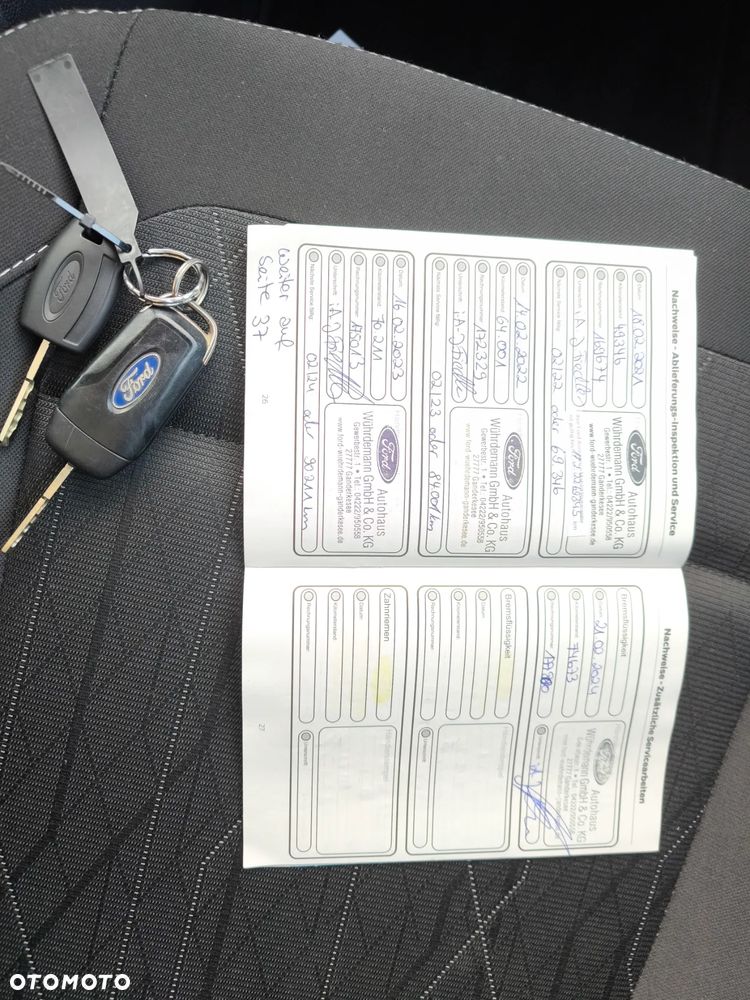 Nachweise - Ablieferungs-Inspektion und Service
Datum 16.02.2021
Kilometerstand 49346
Rechnungsnummer 169674
Unterschrift i.A.
Nächste Service fällig: 02/22 oder 69.346
Ford
Autohaus
Wührdemann GmbH & Co. KG
Gewerbestr. 1 • Tel. 04222/950558
27777 Ganderkesee
www.ford-wuehrdemann-ganderkesee.de
Datum 14.02.2022
Kilometerstand 64.001
Rechnungsnummer 172329
Unterschrift i.A.
Nächste Service fällig: 02/23 oder 84.001 km
Ford
Autohaus
Wührdemann GmbH & Co. KG
Gewerbestr. 1 • Tel. 04222/950558
27777 Ganderkesee
www.ford-wuehrdemann-ganderkesee.de
Datum 16.02.2023
Kilometerstand 70211
Rechnungsnummer
Unterschrift i.A.
Nächste Service fällig: 02/24 oder 90.211 km
Ford
Autohaus
Wührdemann GmbH & Co. KG
Gewerbestr. 1 • Tel. 04222/950558
27777 Ganderkesee
www.ford-wuehrdemann-ganderkesee.de
weiter auf
Seite 37
26
Nachweise - Zusätzliche Servicearbeiten
Bremsflüssigkeit
Datum 21.02.2024
Kilometerstand 74673
Rechnungsnummer
Unterschrift i.A.
Autohaus
Wührdemann GmbH & Co. KG
Gewerbestr. 1 • Tel. 04222/950558
27777 Ganderkesee
Bremsflüssigkeit
Datum
Kilometerstand
Rechnungsnummer
Händlerstempel
Unterschrift
Zahnriemen
Datum
Kilometerstand
Rechnungsnummer
Händlerstempel
Unterschrift
27
Ford
Ford
OTOMOTO